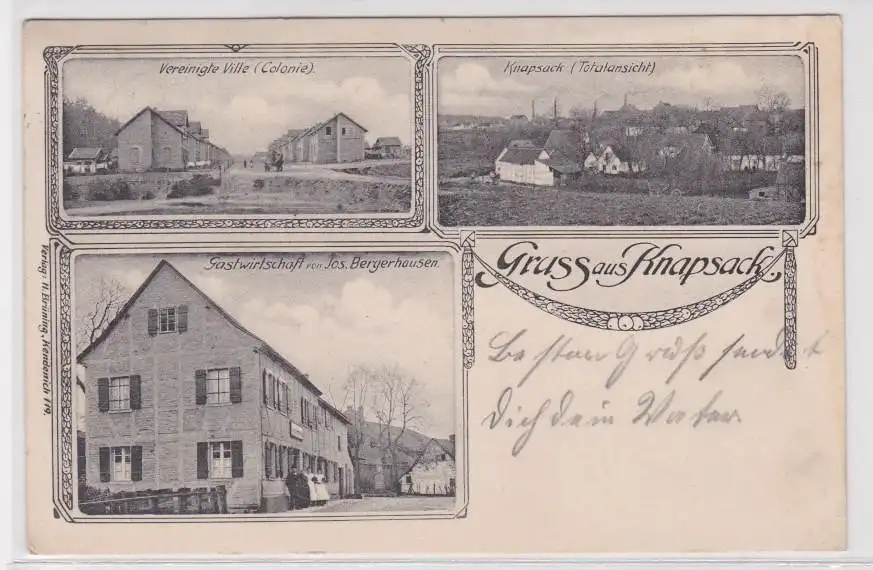 Vereinigte Ville (Colonie).
Knapsack (Totalansicht)
Gastwirtschaft von Jos. Bergerhausen.
Gruss aus Knapsack
Besten Gruß sendet
Dich dein Vater
Verlag: H. Brüning, Kendenich 119.